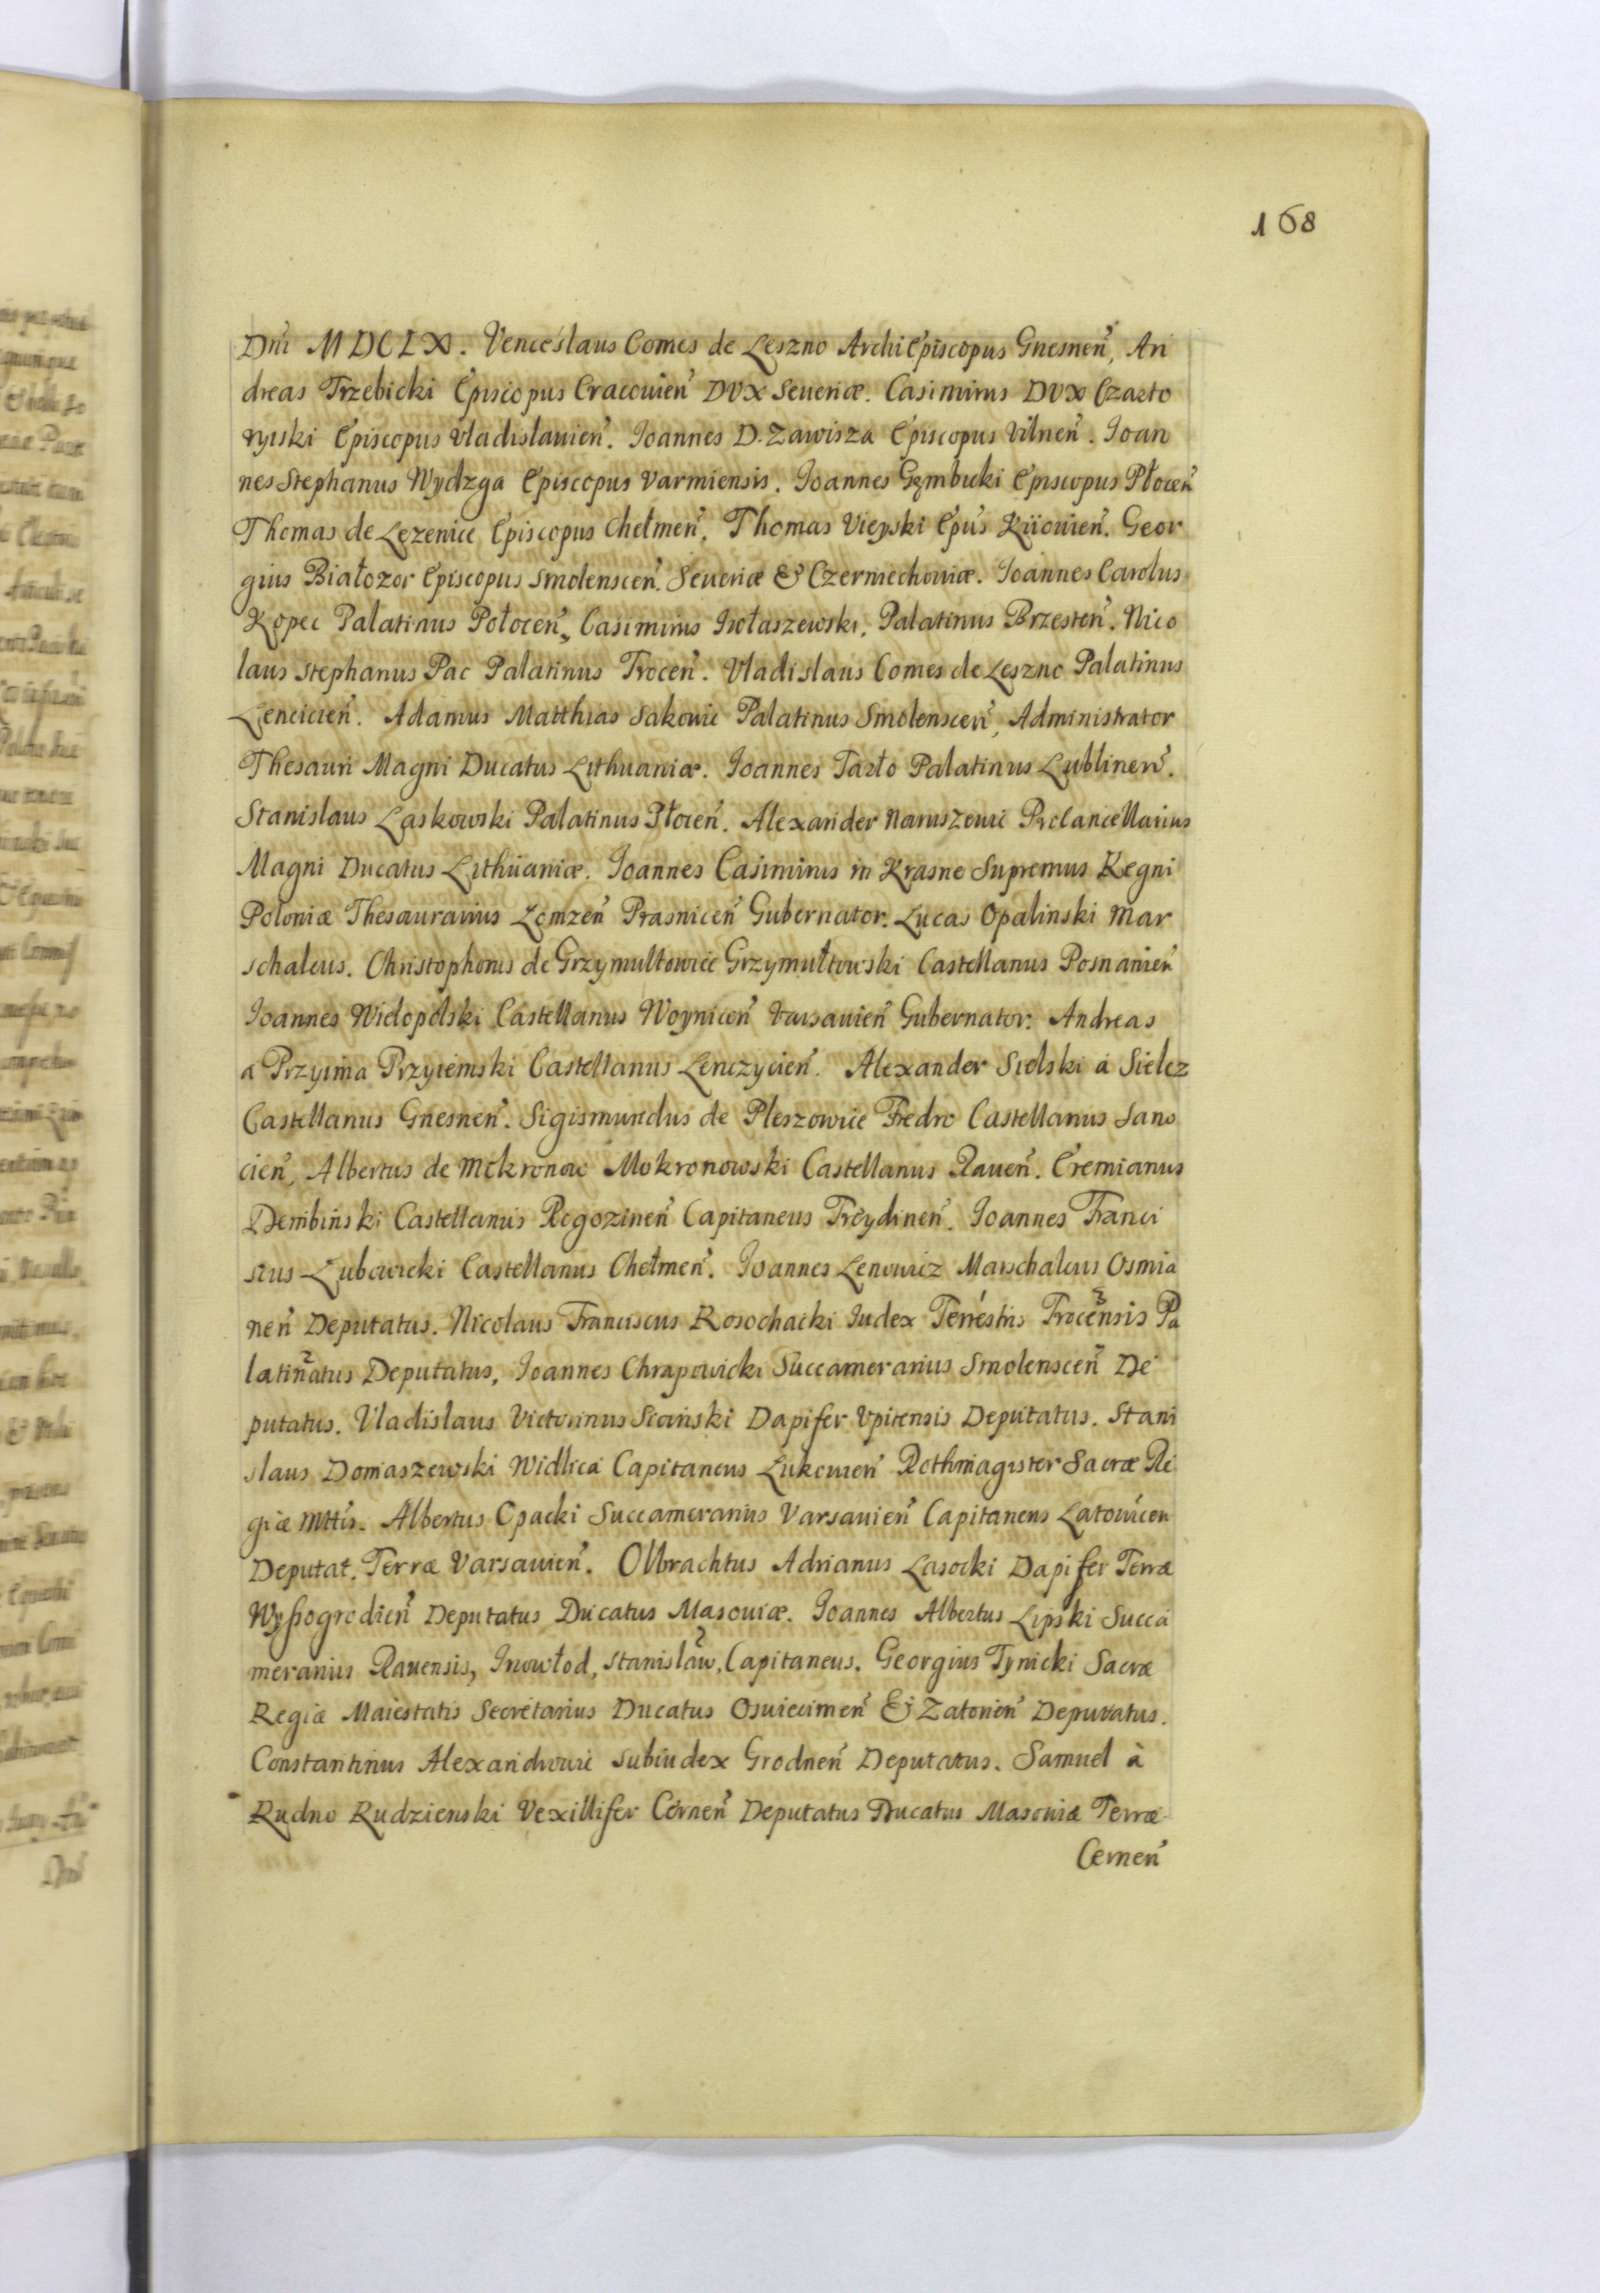 168
Dni MDCLX. Venceslaus Comes de Leszno ArchiEpiscopus Gnesneń, An
dreas Trzebicki Episcopus Cracouień DVX Seueriæ. Casimirus DVX Czarto
ryiski Episcopus Vladislauień. Ioannes D. Zawisza Episcopus Vilneń. Ioan
nes Stephanus Wydzga Episcopus Varmiensis. Ioannes Gęmbicki Episcopus Płoceń
Thomas de Lezenice Episcopus Chełmeń. Thomas Vieyski Epus Kiiouień. Geor
gius Białozor Episcopus Smolensceń. Seueriæ & Czerniechouiæ. Ioannes Carolus
Kopec Palatinus Połoceń, Casimirus Palatinus Brzesteń. Nico
laus Stephanus Pac Palatinus Troceń. Vladislaus Comes de Leszno Palatinus
Lencicień. Adamus Matthias Sakowic Palatinus Smolensceń, Administrator
Thesauri Magni Ducatus Lithuaniæ. Ioannes Tarło Palatinus Lublineń.
Stanislaus Laskowski Palatinus Płoceń. Alexander Naruszewic ProCancellarius
Magni Ducatus Lithuaniæ. Ioannes Casimirus in Krasne Supremus Regni
Poloniæ Thesaurarius Lomzeń Prasniceń Gubernator. Lucas Opalinski Mar
schalcus. Christophorus de Grzymultowice Grzymułtowski Castellanus Posnanień
Ioannes Wielopolski Castellanus Woyniceń Varsauień Gubernator. Andreas
a Przyima Przyiemski Castellanus Lenczycień. Alexander Sielski á Sielcz
Castellanus Gnesneń. Sigismundus de Pleszowice Fredro Castellanus Sano
cień, Albertus de Mokronow Mokronowski Castellanus Raueń. Cremianus
Dembiński Castellanus Rogozineń Capitaneus Treydineń. Ioannes Franci
scus Lubowicki Castellanus Chełmeń. Ioannes Lenowicz Marschalcus Osmia
neń Deputatus. Nicolaus Franciscus Rosochacki Iudex Terrestris Trocensis Pa
latinatus Deputatus, Ioannes Chrapowicki Succamerarius Smolensceń De
putatus. Vladislaus Victorinus Dapifer Vpitensis Deputatus. Stani
slaus Domaszewski Widlica Capitaneus Lukouień Rothmagister Sacræ Re
giæ Mttis. Albertus Opacki Succamerarius Varsauień Capitaneus Latowicen
Deputat. Terræ Varsauień. Olbrachtus Adrianus Lasocki Dapifer Terræ
Wyssogrodień Deputatus Ducatus Masouiæ. Ioannes Albertus Lipski Succa
merarius Rauensis, Inowłod, Stanisław, Capitaneus. Georgius Tynicki Sacræ
Regiæ Maiestatis Secretarius Ducatus Osuiecimeń & Zatorień Deputatus.
Constantinus Alexandrowic Subiudex Grodneń Deputatus. Samuel à
Rudno Rudzienski Vexillifer Cerneń Deputatus Ducatus Masouiæ Terræ
Cerneń